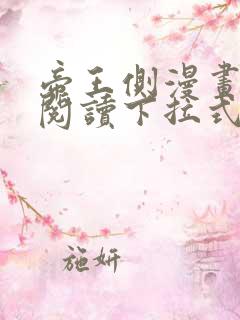 帝王側漫畫
閱讀下拉式
施妍